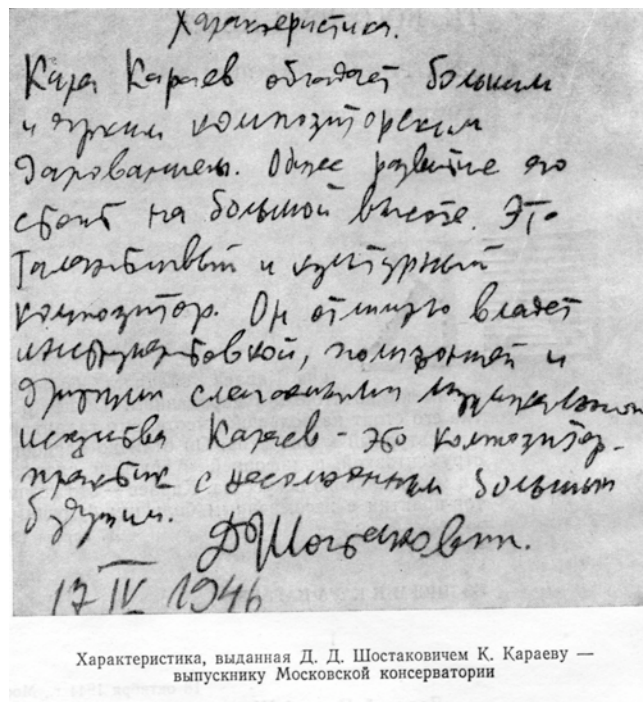 Характеристика.
Кара Караев обладает большим
и ярким композиторским
дарованием. Общее развитие его
стоит на большой высоте. Это
талантливый и культурный
композитор. Он отлично владеет
инструментовкой, полифонией и
другими слагаемыми музыкального
искусства. Караев – это композитор-
практик с несомненным большим
будущим.
Д. Шостакович.
17 IV 1946
Характеристика, выданная Д. Д. Шостаковичем К. Караеву —
выпускнику Московской консерватории